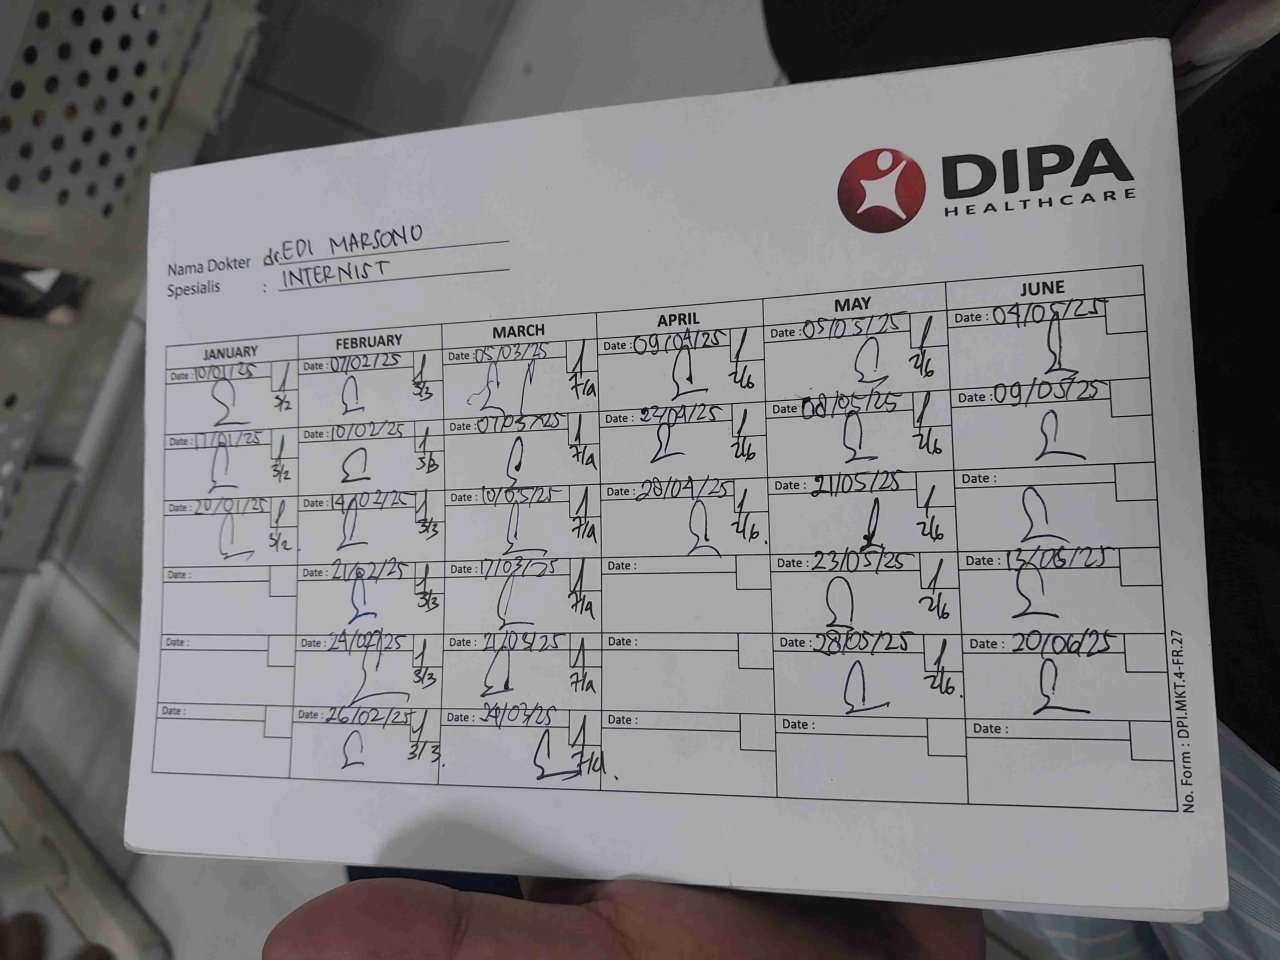 DIPA
HEALTHCARE
Nama Dokter dr. EDI MARSONO
Spesialis : INTERNIST
JANUARY FEBRUARY MARCH APRIL MAY JUNE
Date : 10/01/25 3/2 Date : 07/02/25 3/3 Date : 05/03/25 7/4 Date : 09/04/25 2/6 Date : 05/05/25 2/6 Date : 04/05/25
Date : 17/01/25 3/2 Date : 10/02/25 3/3 Date : 07/03/25 7/4 Date : 2/6 Date : 08/05/25 2/6 Date : 09/05/25
Date : 20/01/25 3/2 Date : 14/02/25 3/3 Date : 7/4 Date : 28/04/25 2/6 Date : 21/05/25 2/6 Date :
Date : Date : 21/02/25 3/3 Date : 17/03/25 7/4 Date : Date : 23/05/25 2/6 Date : 13/06/25
Date : Date : 24/02/25 3/3 Date : 21/03/25 7/4 Date : Date : 28/05/25 2/6 Date : 20/06/25
Date : Date : 26/02/25 3/3 Date : 7/4 Date : Date : Date :
No. Form : DPI.MKT.4-FR.27